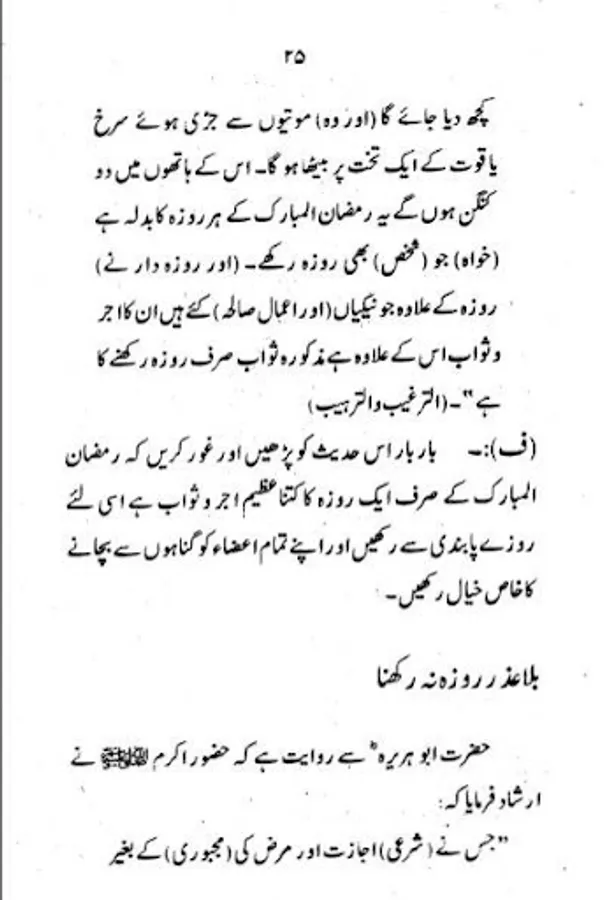 ۲۵
کچھ دیا جائے گا (اور وہ) موتیوں سے جڑی ہوئے سرخ
یاقوت کے ایک تخت پر بیٹھا ہو گا۔ اس کے ہاتھوں میں دو
کنگن ہوں گے یہ رمضان المبارک کے ہر روزہ کا بدلہ ہے
(خواہ) جو (شخص) بھی روزہ رکھے۔ (اور روزہ دار نے)
روزہ کے علاوہ جو نیکیاں (اور اعمال صالحہ) کئے ہیں ان کا اجر
و ثواب اس کے علاوہ ہے مذکورہ ثواب صرف روزہ رکھنے کا
ہے"۔ (الترغیب والترہیب)
(ف):۔ بار بار اس حدیث کو پڑھیں اور غور کریں کہ رمضان
المبارک کے صرف ایک روزہ کا کتنا عظیم اجر و ثواب ہے اسی لئے
روزے پابندی سے رکھیں اور اپنے تمام اعضاء کو گناہوں سے بچانے
کا خاص خیال رکھیں۔
بلاعذر روزہ نہ رکھنا
حضرت ابو ہریرہؓ سے روایت ہے کہ حضور اکرم ﷺ نے
ارشاد فرمایا کہ:
"جس نے (شرعی) اجازت اور مرض کی (مجبوری) کے بغیر